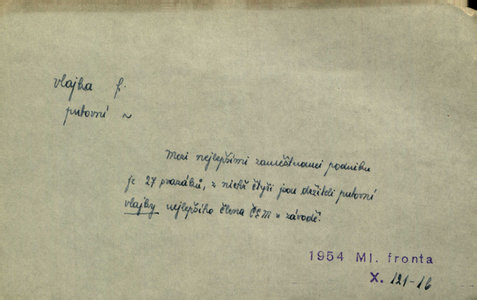 vlajka f.
putovní ~
Mezi nejlepšími zaměstnanci podniku
je 27 svazáků, z nichž čtyři jsou držiteli putovní
vlajky nejlepšího člena ČSM v závodě.
1954 Ml. fronta
X. 121-16